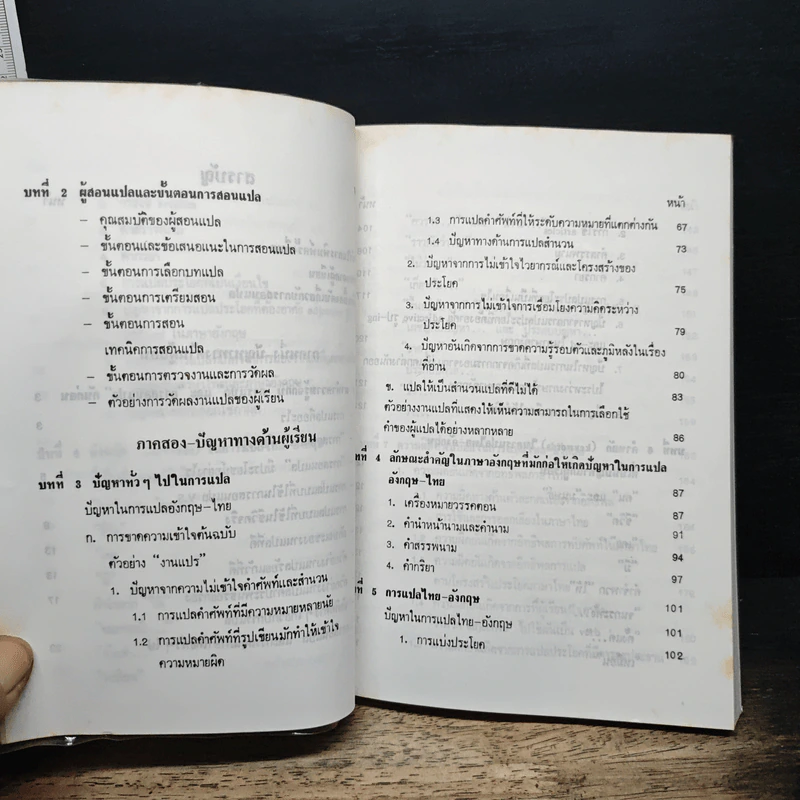 บทที่ 2 ผู้สอนแปลและขั้นตอนการสอนแปล
– คุณสมบัติของผู้สอนแปล
– ขั้นตอนและข้อเสนอแนะในการสอนแปล
– ขั้นตอนการเลือกบทแปล
– ขั้นตอนการเตรียมสอน
– ขั้นตอนการสอน
เทคนิคการสอนแปล
– ขั้นตอนการตรวจงานและการวัดผล
– ตัวอย่างการวัดผลงานแปลของผู้เรียน
ภาคสอง–ปัญหาทางด้านผู้เรียน
บทที่ 3 ปัญหาทั่วๆ ไปในการแปล
ปัญหาในการแปลอังกฤษ–ไทย
ก. การขาดความเข้าใจต้นฉบับ
ตัวอย่าง "งานแปร"
1. ปัญหาจากความไม่เข้าใจคำศัพท์และสำนวน
1.1 การแปลคำศัพท์ที่มีความหมายหลายนัย
1.2 การแปลคำศัพท์ที่รูปเขียนมักทำให้เข้าใจ
ความหมายผิด
หน้า
1.3 การแปลคำศัพท์ที่ให้ระดับความหมายที่แตกต่างกัน 67
1.4 ปัญหาทางด้านการแปลสำนวน 73
2. ปัญหาจากการไม่เข้าใจไวยากรณ์และโครงสร้างของ
ประโยค 75
3. ปัญหาจากการไม่เข้าใจการเชื่อมโยงความคิดระหว่าง
ประโยค 79
4. ปัญหาอันเกิดจากการขาดความรู้รอบตัวและภูมิหลังในเรื่อง
ที่อ่าน 80
ข. แปลให้เป็นสำนวนแปลที่ดีไม่ได้ 83
ตัวอย่างงานแปลที่แสดงให้เห็นความสามารถในการเลือกใช้
คำของผู้แปลได้อย่างหลากหลาย 86
ทที่ 4 ลักษณะสำคัญในภาษาอังกฤษที่มักก่อให้เกิดปัญหาในการแปล
อังกฤษ–ไทย 87
1. เครื่องหมายวรรคตอน 87
2. คำนำหน้านามและคำนาม 91
3. คำสรรพนาม 94
4. คำกริยา 97
ที่ 5 การแปลไทย–อังกฤษ 101
ปัญหาในการแปลไทย–อังกฤษ 101
1. การแบ่งประโยค 102